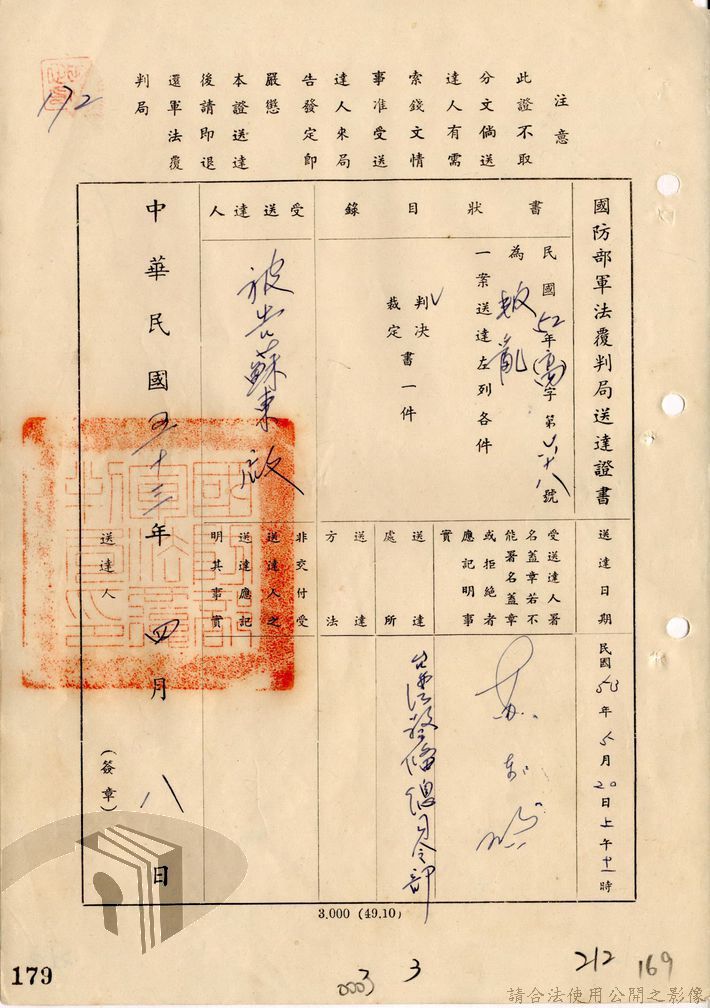 注意
此證不取
分文倘送
達人有需
索錢文情
事准受送
達人來局
告發定即
嚴懲
本證送達
後請即退
還軍法覆
判局
172
國防部軍法覆判局送達證書
書狀目錄
民國52年
字第
號
為叛亂
一案送達左列各件
判決
裁定書一件
受送達人
被告蘇東啟
送達日期
民國53年5月20日上午十一時
受送達人署
名蓋章若不
能署名蓋章
或拒絕者
應記明事
實
蘇東啟
送達處所
台灣警備總司令部
送達方法
非交付受
送達人之
送達應記
明其事實
中華民國五十三年四月八日
送達人
(簽章)
3.000 (49.10)
179
0003
3
212
169
請合法使用公開之影像